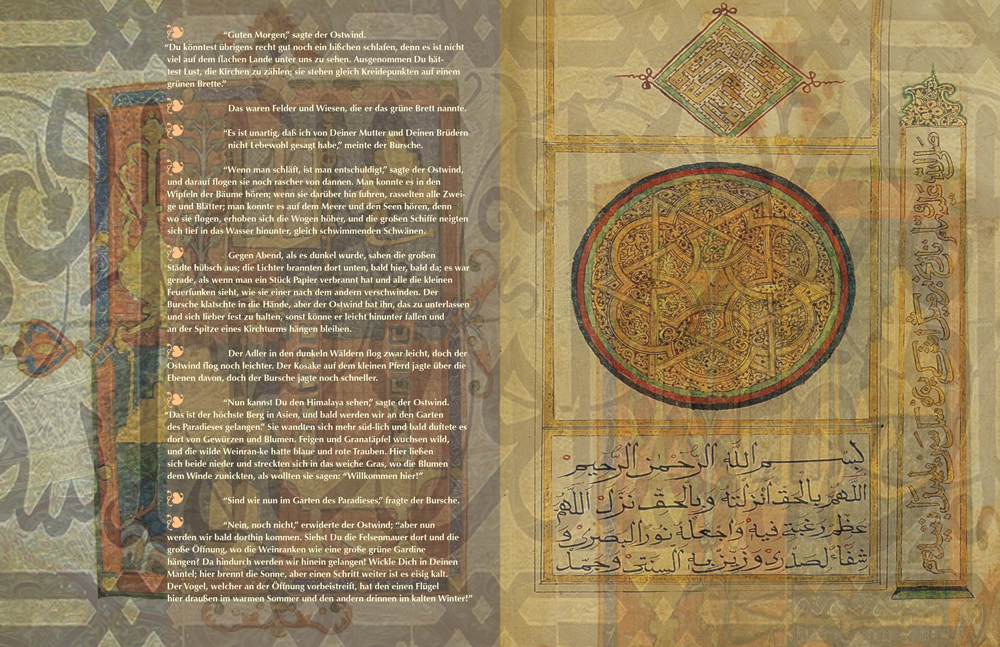 “Guten Morgen,” sagte der Ostwind.
“Du könntest übrigens recht gut noch ein bißchen schlafen, denn es ist nicht
viel auf dem flachen Lande unter uns zu sehen. Ausgenommen Du hät-
test Lust, die Kirchen zu zählen; sie stehen gleich Kreidepunkten auf einem
grünen Brette.”
Das waren Felder und Wiesen, die er das grüne Brett nannte.
“Es ist unartig, daß ich von Deiner Mutter und Deinen Brüdern
nicht Lebewohl gesagt habe,” meinte der Bursche.
“Wenn man schläft, ist man entschuldigt,” sagte der Ostwind,
und darauf flogen sie noch rascher von dannen. Man konnte es in den
Wipfeln der Bäume hören; wenn sie darüber hin fuhren, rasselten alle Zwei-
ge und Blätter; man konnte es auf dem Meere und den Seen hören, denn
wo sie flogen, erhoben sich die Wogen höher, und die großen Schiffe neigten
sich tief in das Wasser hinunter, gleich schwimmenden Schwänen.
Gegen Abend, als es dunkel wurde, sahen die großen
Städte hübsch aus; die Lichter brannten dort unten, bald hier, bald da; es war
gerade, als wenn man ein Stück Papier verbrannt hat und alle die kleinen
Feuerfunken sieht, wie sie einer nach dem andern verschwinden. Der
Bursche klatschte in die Hände, aber der Ostwind bat ihn, das zu unterlassen
und sich lieber fest zu halten, sonst könne er leicht hinunter fallen und
an der Spitze eines Kirchturms hängen bleiben.
Der Adler in den dunkeln Wäldern flog zwar leicht, doch der
Ostwind flog noch leichter. Der Kosake auf dem kleinen Pferd jagte über die
Ebenen davon, doch der Bursche jagte noch schneller.
“Nun kannst Du den Himalaya sehen,” sagte der Ostwind.
“Das ist der höchste Berg in Asien, und bald werden wir an den Garten
des Paradieses gelangen.” Sie wandten sich mehr süd-lich und bald duftete es
dort von Gewürzen und Blumen. Feigen und Granatäpfel wuchsen wild,
und die wilde Weinran-ke hatte blaue und rote Trauben. Hier ließen
sich beide nieder und streckten sich in das weiche Gras, wo die Blumen
dem Winde zunickten, als wollten sie sagen: “Willkommen hier!”
“Sind wir nun im Garten des Paradieses,” fragte der Bursche.
“Nein, noch nicht,” erwiderte der Ostwind; “aber nun
werden wir bald dorthin kommen. Siehst Du die Felsenmauer dort und die
große Öffnung, wo die Weinranken wie eine große grüne Gardine
hängen? Da hindurch werden wir hinein gelangen! Wickle Dich in Deinen
Mantel; hier brennt die Sonne, aber einen Schritt weiter ist es eisig kalt.
Der Vogel, welcher an der Öffnung vorbeistreift, hat den einen Flügel
hier draußen im warmen Sommer und den andern drinnen im kalten Winter!”
بسم الله الرحمن الرحيم
اللهم بالحق انزلته وبالحق نزل اللهم
عظم رغبتي فيه واجعله نورا لبصري و
شفاء لصدري وزين به السنتي وجمل